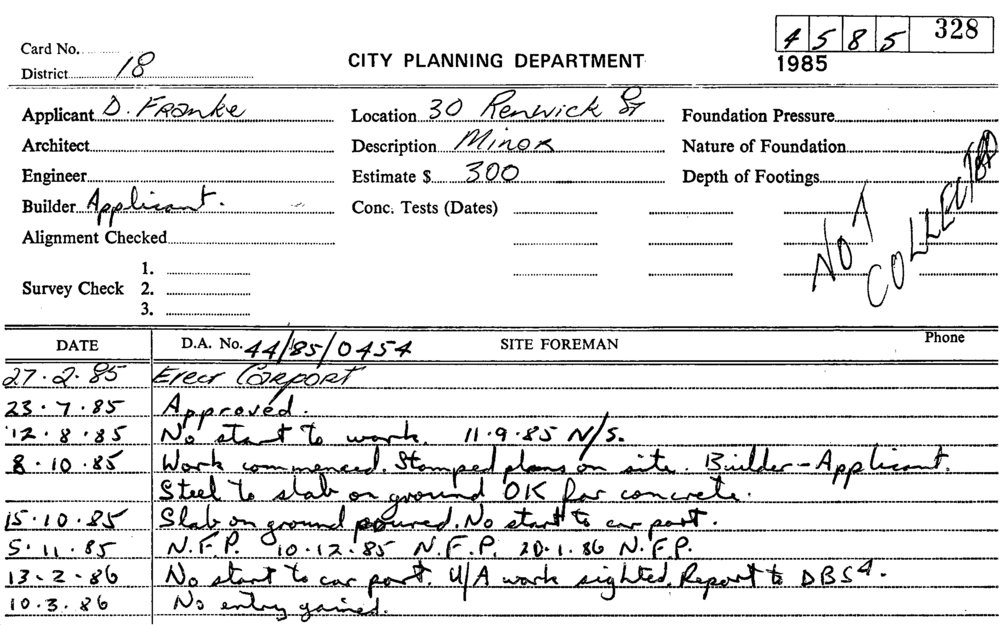 4585 328
Card No.
1985
CITY PLANNING DEPARTMENT
District 18
Applicant D. Franke
Location 30 Renwick St
Foundation Pressure
Architect
Description Minor
Nature of Foundation
Engineer
Estimate $ 300
Depth of Footings
Builder Applicant.
Conc. Tests (Dates)
NOT COLLECTED
Alignment Checked
1.
Survey Check 2.
3.
DATE D.A. No. 44/85/0454 SITE FOREMAN Phone
27.2.85 Erect Carport
23.7.85 Approved.
12.8.85 No start to work. 11.9.85 N/S.
8.10.85 Work commenced. Stamped plans on site. Builder-Applicant.
Steel to slab on ground OK for concrete.
15.10.85 Slab on ground poured. No start to car port.
5.11.85 N.F.P. 10.12.85 N.F.P. 20.1.86 N.F.P.
13.2.86 No start to car port. U/A work sighted. Report to DBS4.
10.3.86 No entry gained.